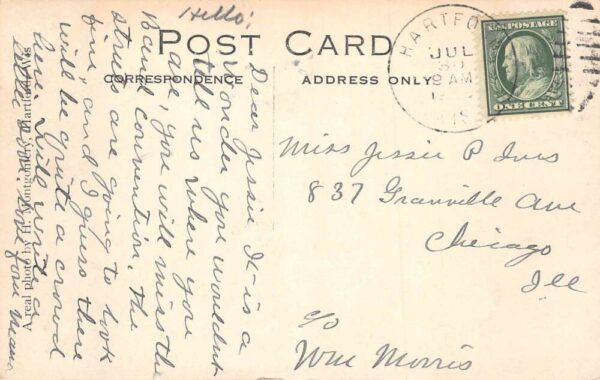 Hello!
POST CARD
CORRESPONDENCE
ADDRESS ONLY
HARTFO
JUL
30
AM
WIS
U.S. POSTAGE
ONE CENT
Dear Jessie It is a
wonder you wouldnt
tell us where you
are, you will miss the
Band convention. The
streets are going to look
fine, and I guess there
will be quite a crowd
here. Will write a
letter
A real photo by H. Montgomery, Hartford, Wis
Miss Jessie P Ives
837 Granville Ave
Chicago
Ill
c/o
Wm Morris